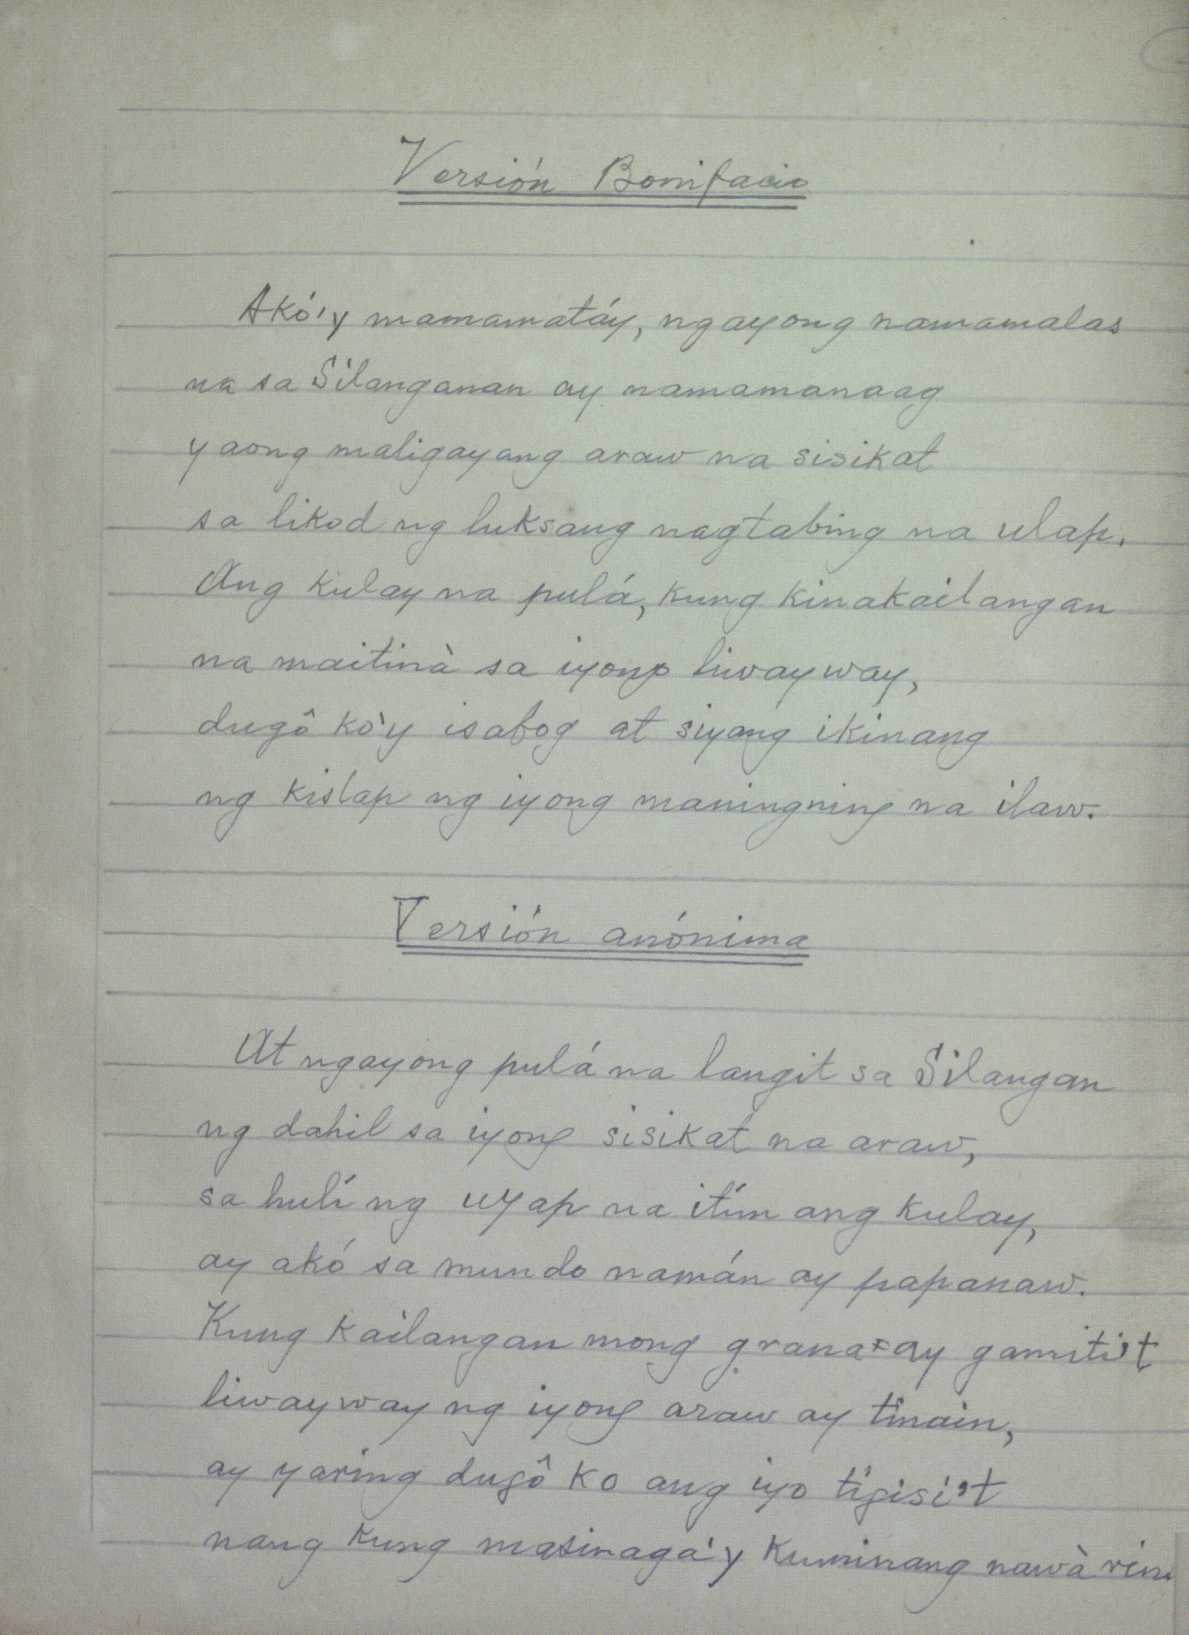 Versión Bonifacio
Akó'y mamamatáy, ngayong namamalas
na sa Silanganan ay namamanaag
yaong maligayang araw na sisikat
sa likod ng luksang nagtabing na ulap.
Ang kulay na pulá, kung kinakailangan
na maitinà sa iyong liwayway,
dugô ko'y isabog at siyang ikinang
ng kislap ng iyong maningning na ilaw.
Versión anónima
At ngayong pulá na langit sa Silangan
ng dahil sa iyong sisikat na araw,
sa hulí ng uyap na itím ang kulay,
ay akó sa mundo namán ay papanaw.
Kung kailangan mong grana ay gamiti't
liwayway ng iyong araw ay tinain,
ay yaring dugô ko ang iyo tigisi't
nang kung masinaga'y kuminang nawà rin